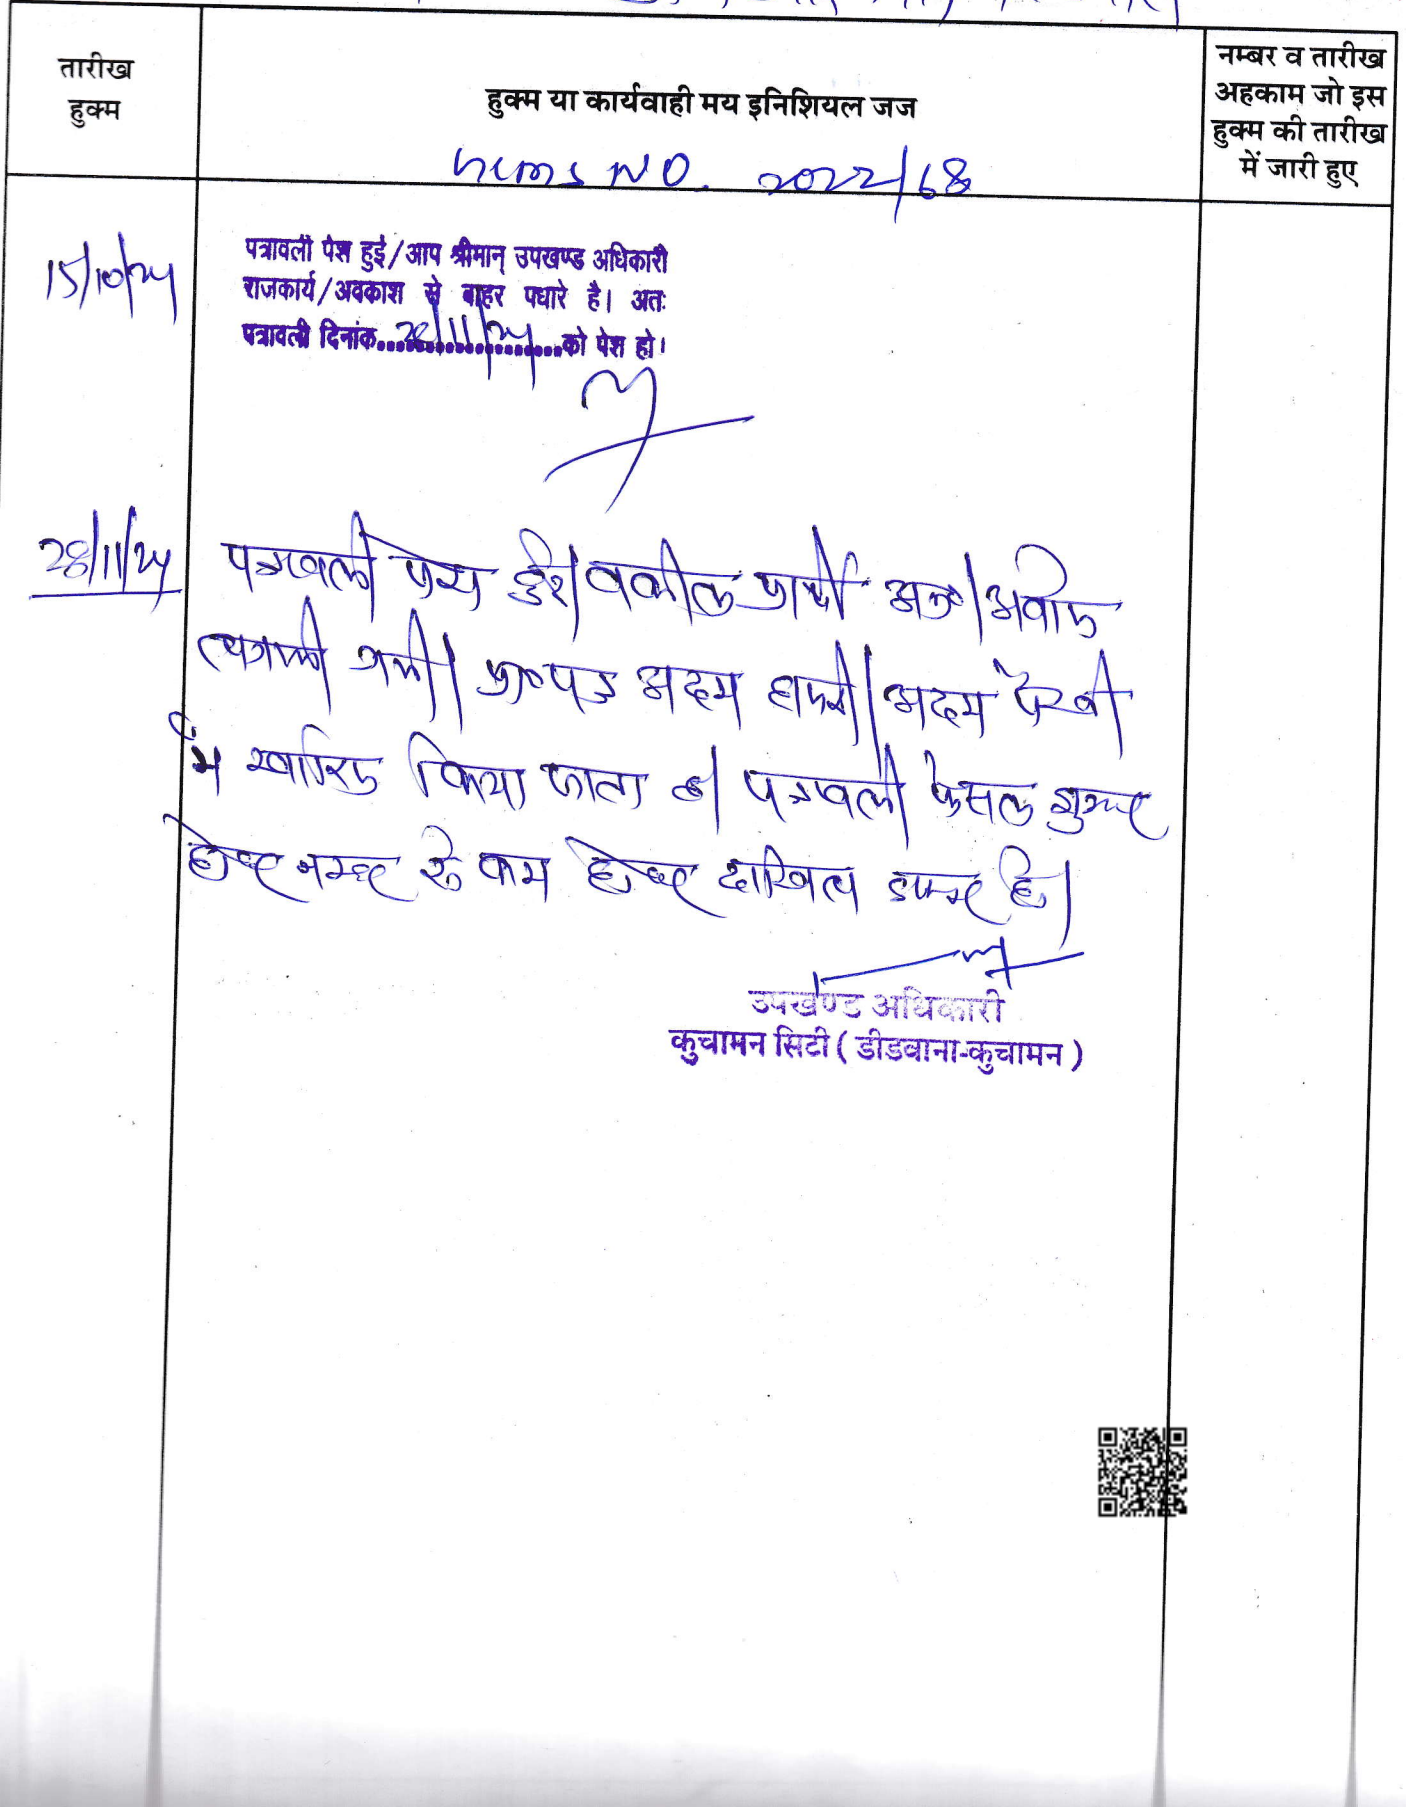 तारीख
हुक्म
हुक्म या कार्यवाही मय इनिशियल जज
नम्बर व तारीख
अहकाम जो इस
हुक्म की तारीख
में जारी हुए
NO. 2022/68
15/10/24
पत्रावली पेश हुई/आप श्रीमान् उपखण्ड अधिकारी
राजकार्य/अवकाश से बाहर पधारे है। अतः
पत्रावली दिनांक...28/11/24...को पेश हो।
28/11/24
पत्रावली पेश हुई। वकील प्रार्थी
अदम हाजरी/अदम पैरवी
में खारिज किया जाता है। पत्रावली फैसल शुमार
होकर नम्बर से कम होकर दाखिल दफ्तर हो।
उपखण्ड अधिकारी
कुचामन सिटी ( डीडवाना-कुचामन )